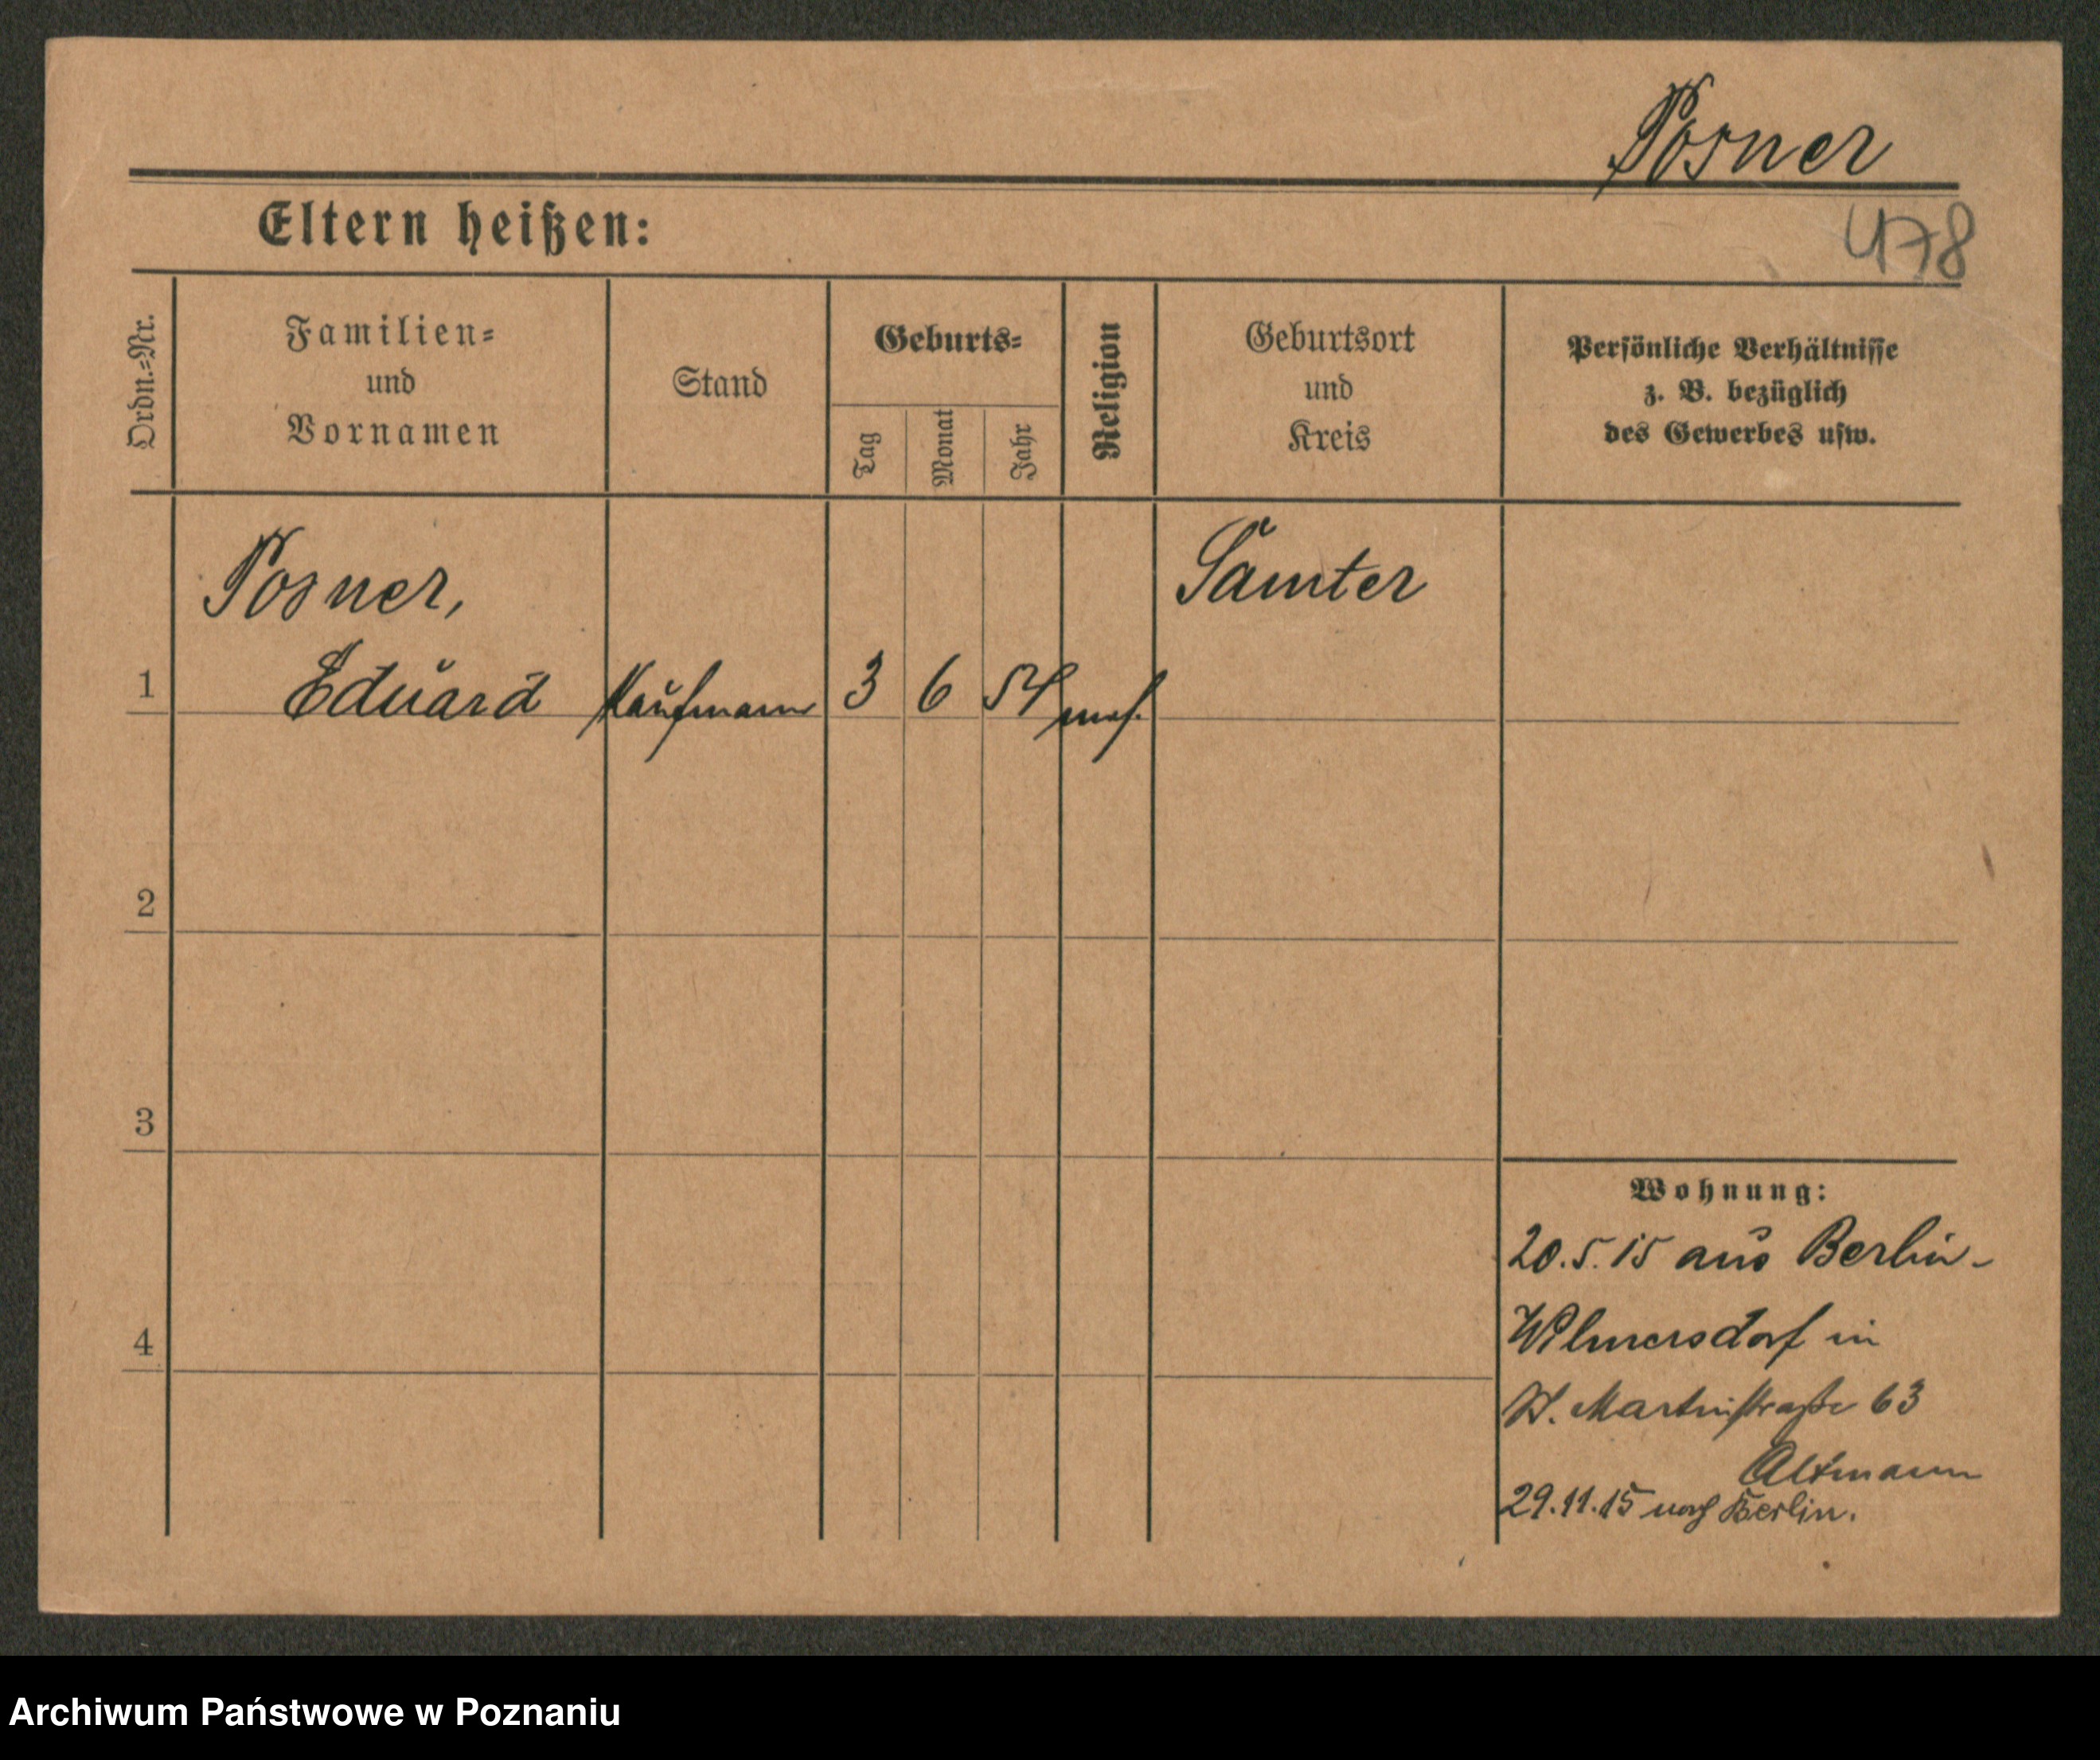 Posner
478
Eltern heißen:
Ordn.=Nr.
Familien=
und
Vornamen
Stand
Geburts=
Tag
Monat
Jahr
Religion
Geburtsort
und
Kreis
Persönliche Verhältnisse
z. B. bezüglich
des Gewerbes usw.
Posner,
Samter
1 Eduard Kaufmann 3 6 54 mos.
2
3
4
Wohnung:
20.5.15 aus Berlin-
Wilmersdorf in
St. Martinstraße 63
Altmann
29.11.15 nach Berlin.
Archiwum Państwowe w Poznaniu